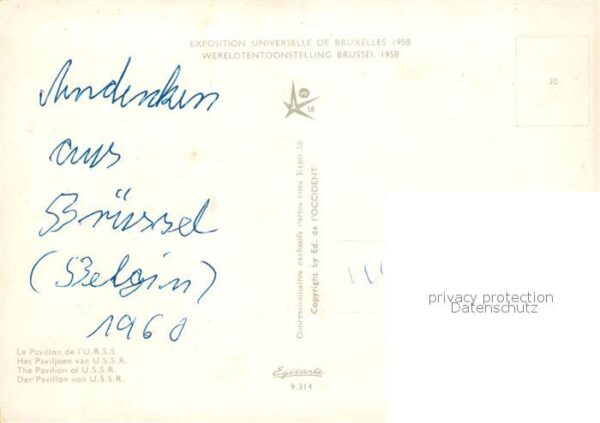 EXPOSITION UNIVERSELLE DE BRUXELLES 1958
WERELDTENTOONSTELLING BRUSSEL 1958
30
58
Andenken
aus
Brüssel
(Belgin)
1960
Concessionnaire exclusif cartes-vues Expo 58
Copyright by Ed. de l'OCCIDENT
privacy protection
Datenschutz
Le Pavillon de l'U.R.S.S.
Het Paviljoen van U.S.S.R.
The Pavilion of U.S.S.R.
Der Pavillon von U.S.S.R.
Egicarte
9.314